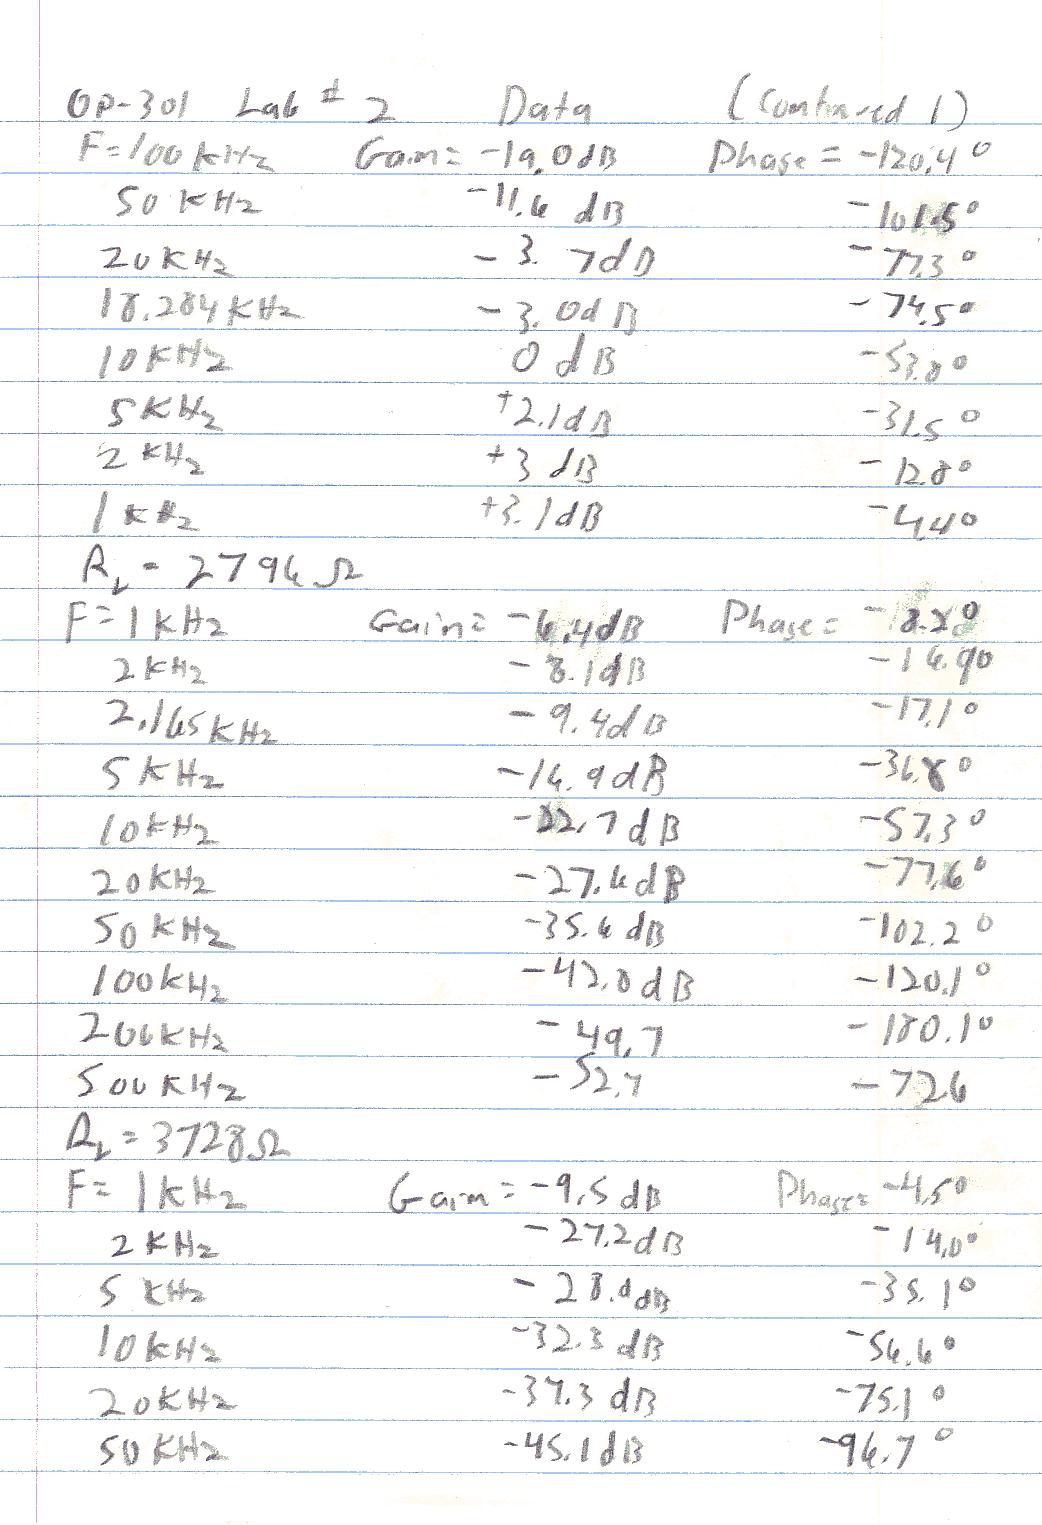 OP-301 Lab # 2 Data (Continued 1)
F=100 KHz Gain= -19.0dB Phase = -120.4°
50 KHz -11.6 dB -101.5°
20 KHz -3.7dB -77.3°
18.284 KHz -3.0dB -74.5°
10 KHz 0 dB -53.8°
5 KHz +2.1dB -31.5°
2 KHz +3 dB -12.8°
1 KHz +3.1dB -4.4°
RL = 2796 Ω
F=1 KHz Gain= -6.4dB Phase= -8.28°
2 KHz -8.1dB -16.9°
2.165 KHz -9.4dB -17.1°
5 KHz -16.9dB -36.8°
10 KHz -22.7 dB -57.3°
20 KHz -27.6dB -77.6°
50 KHz -35.6 dB -102.2°
100 KHz -42.0 dB -120.1°
200 KHz -49.7 -180.1°
500 KHz -52.7 -726
RL = 3728Ω
F= 1 KHz Gain= -9.5 dB Phase= -4.5°
2 KHz -27.2dB -14.0°
5 KHz -28.0 dB -35.1°
10 KHz -32.3 dB -56.6°
20 KHz -37.3 dB -75.1°
50 KHz -45.1dB -96.7°